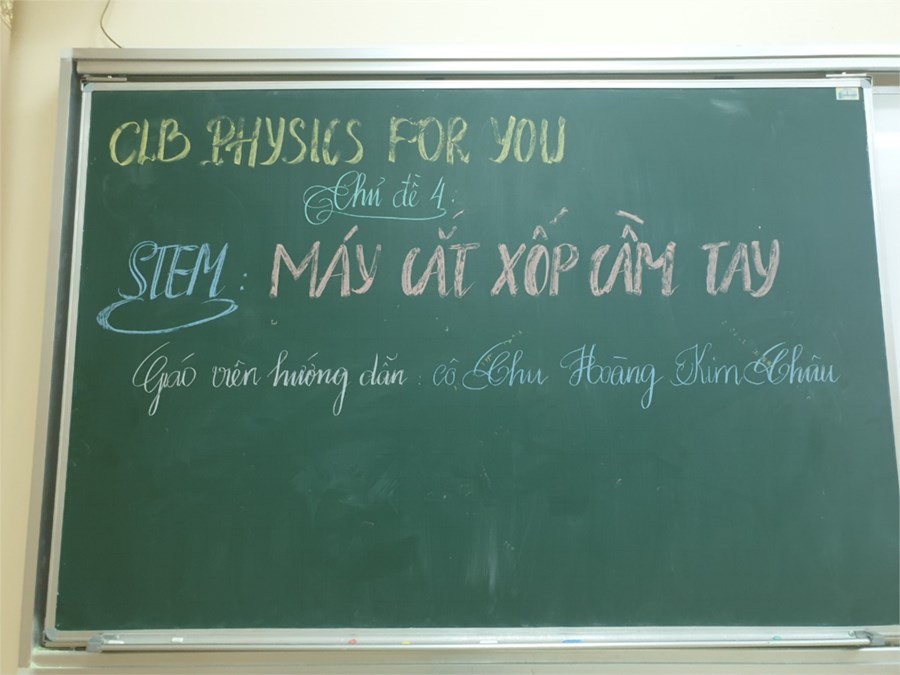 CLB PHYSICS FOR YOU
Chủ đề 4:
STEM: MÁY CẮT XỐP CẦM TAY
Giáo viên hướng dẫn: cô Chu Hoàng Kim Châu